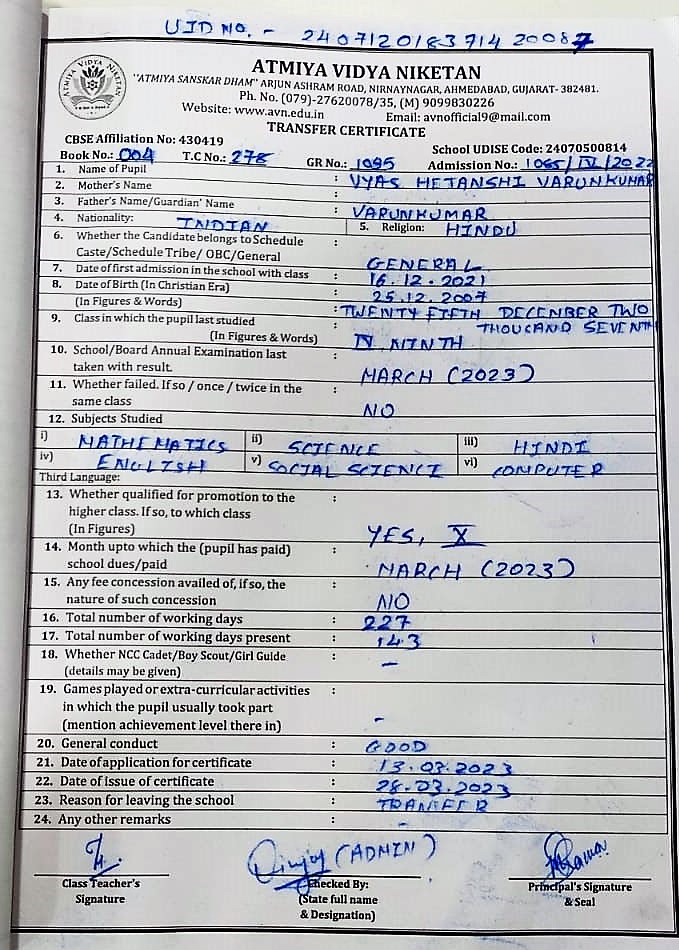 UID NO. - 240712018371420087
ATMIYA VIDYA NIKETAN
"ATMIYA SANSKAR DHAM" ARJUN ASHRAM ROAD, NIRNAYNAGAR, AHMEDABAD, GUJARAT- 382481.
Ph. No. (079)-27620078/35, (M) 9099830226
Website: www.avn.edu.in Email: avnofficial9@mail.com
TRANSFER CERTIFICATE
CBSE Affiliation No: 430419 School UDISE Code: 24070500814
Book No.: 004 T.C No.: 278 GR No.: 1095 Admission No.: 1085/IV/2022
1. Name of Pupil : VYAS HETANSHI VARUNKUMAR
2. Mother's Name :
3. Father's Name/Guardian' Name : VARUNKUMAR
4. Nationality: INDIAN 5. Religion: HINDU
6. Whether the Candidate belongs to Schedule :
Caste/Schedule Tribe/ OBC/General GENERAL
7. Date of first admission in the school with class : 16.12.2021
8. Date of Birth (In Christian Era) : 25.12.2007
(In Figures & Words) : TWENTY FIFTH DECEMBER TWO
THOUSAND SEVENTH
9. Class in which the pupil last studied :
(In Figures & Words) IV NINTH
10. School/Board Annual Examination last :
taken with result. MARCH (2023)
11. Whether failed. If so / once / twice in the :
same class NO
12. Subjects Studied
i) MATHEMATICS ii) SCIENCE iii) HINDI
iv) ENGLISH v) SOCIAL SCIENCE vi) COMPUTER
Third Language:
13. Whether qualified for promotion to the :
higher class. If so, to which class
(In Figures) YES, X
14. Month upto which the (pupil has paid) :
school dues/paid MARCH (2023)
15. Any fee concession availed of, if so, the :
nature of such concession NO
16. Total number of working days : 227
17. Total number of working days present : 143
18. Whether NCC Cadet/Boy Scout/Girl Guide : -
(details may be given)
19. Games played or extra-curricular activities :
in which the pupil usually took part
(mention achievement level there in) -
20. General conduct : GOOD
21. Date of application for certificate : 13.03.2023
22. Date of issue of certificate : 28.03.2023
23. Reason for leaving the school : TRANFER
24. Any other remarks : -
(ADMIN)
Class Teacher's Checked By: Principal's Signature
Signature (State full name & Seal
& Designation)